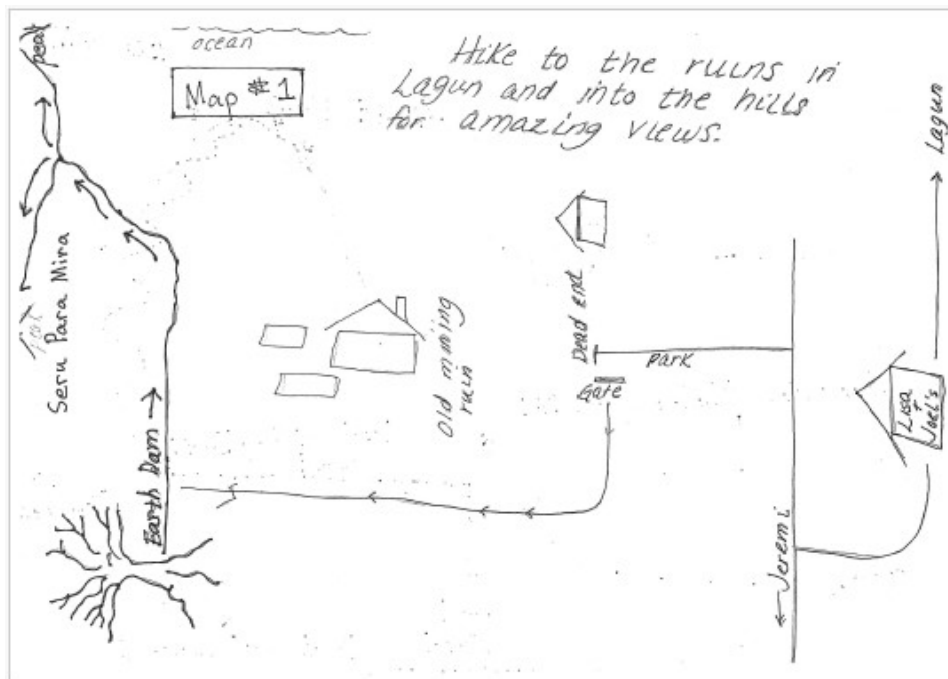 peak
ocean
Map #1
Hike to the ruins in
Lagun and into the hills
for amazing views.
Lagun
Seru Para Mira
Earth Dam
Old mining
ruin
Dead end
Park
Gate
Lisa
+
Joel's
Jeremi